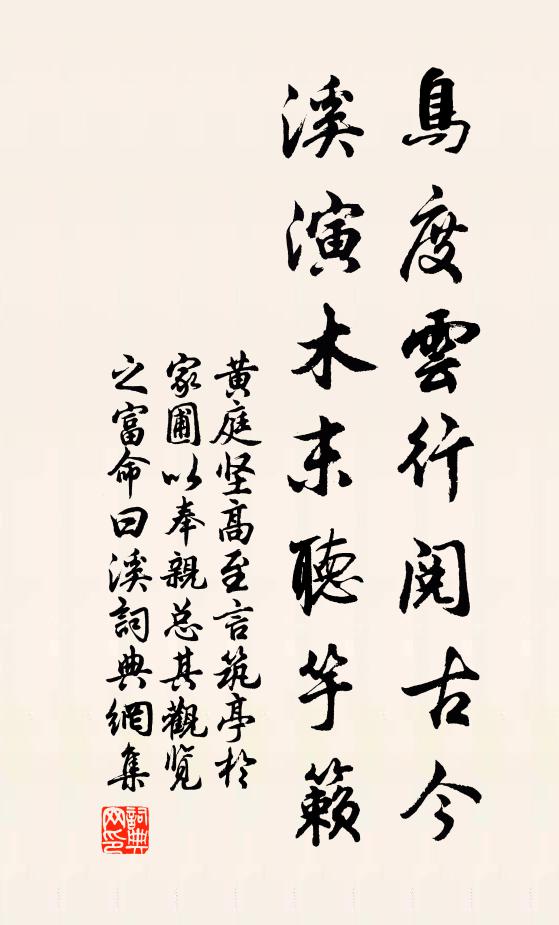 鳥度雲行閱古今
溪演木末聽竽籟
黄庭坚高至言筑亭於
家圃以奉親总其觀览
之富命曰溪詞典網集
詞典
网印